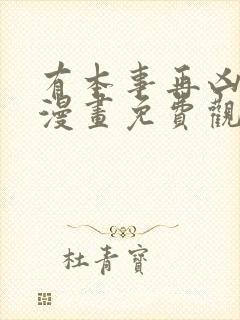 有本事再凶
漫畫免費觀
杜青寶